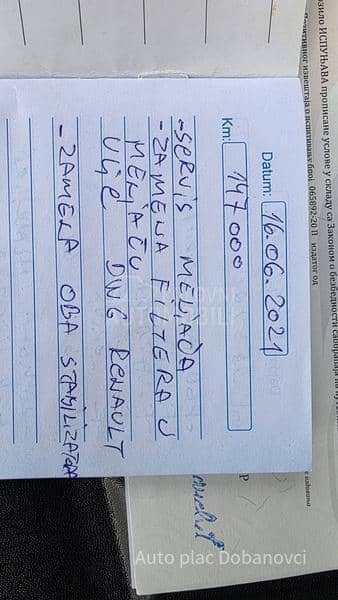 азило ИСПУЊАВА прописане услове у складу са Законом о безбедности саобраћаја на пут
извештаја о испитивању број. 065892-20 П издатог од
Datum: 16.06.2021
Km: 147000
-SERVIS MENJAČA
-ZAMENA FILTERA U
MENJAČU
ULJE DWG RENAULT
- ZAMENA OBA STABILIZATORA
Auto plac Dobanovci